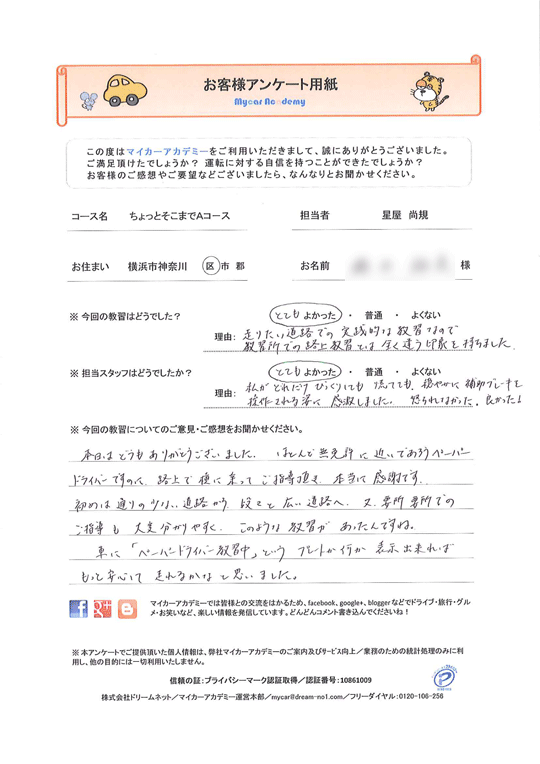 お客様アンケート用紙
Mycar Academy
この度はマイカーアカデミーをご利用いただきまして、誠にありがとうございました。
ご満足頂けたでしょうか？ 運転に対する自信を持つことができたでしょうか？
お客様のご感想やご要望などございましたら、なんなりとお聞かせください。
コース名 ちょっとそこまでAコース 担当者 星屋 尚規
お住まい 横浜市神奈川 区 市 郡 お名前 様
※ 今回の教習はどうでした？ とてもよかった ・ 普通 ・ よくない
理由： 走りたい道路での実践的な教習なので
教習所での路上教習とは全く違う印象を持ちました。
※ 担当スタッフはどうでしたか？ とてもよかった ・ 普通 ・ よくない
理由： 私がどれだけびっくりしても慌てても、穏やかに補助ブレーキを
操作される姿に感激しました。 怒られなかった。良かった！
※ 今回の教習についてのご意見・ご感想をお聞かせください。
本日はどうもありがとうございました。 ほとんど無免許に近いであろうペーパー
ドライバーですのに、路上で横に乗ってご指導頂き、本当に感謝です。
初めは通りの少ない道路から、段々と広い道路へ。又、要所要所での
ご指導も大変分かりやすく、このような教習があったんですね。
車に「ペーパードライバー教習中」という プレートか何か表示出来れば
もっと安心して走れるかなと思いました。
マイカーアカデミーでは皆様との交流をはかるため、facebook、google+、bloggerなどでドライブ・旅行・グル
メ・お笑いなど、楽しい情報を発信しています。どんどんコメント書き込んでくださいね！
※ 本アンケートでご提供頂いた個人情報は、弊社マイカーアカデミーのご案内及びサービス向上／業務のための統計処理のみに利
用し、他の目的には一切利用いたしません。
信頼の証：プライバシーマーク認証取得／認証番号：10861009
株式会社ドリームネット／マイカーアカデミー運営本部／mycar@dream-no1.com／フリーダイヤル：0120-106-256